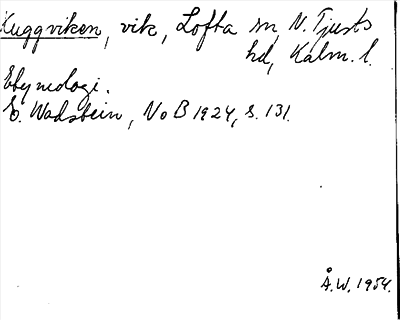 Kuggviken, vik, Lofta sn, N. Tjusts
hd, Kalm. l.
Etymologi.
E. Wadstein, NoB 1924, s. 131.
Å.W. 1954.